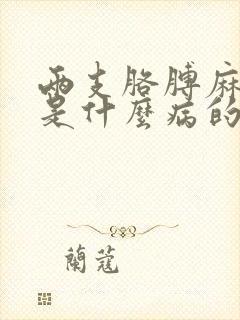 兩支胳膊麻
是什麼病的
蘭蔻